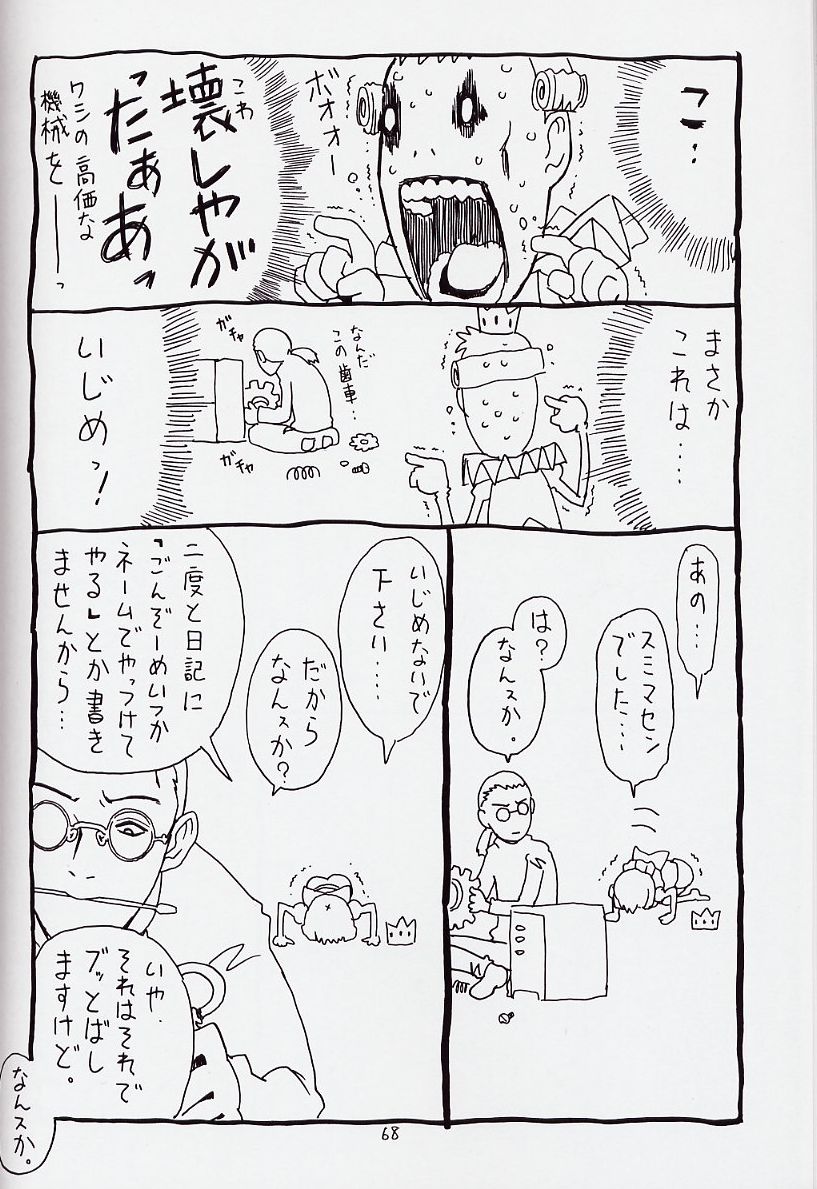 こ…
ボオォー
こわ
壊しやが
ったぁあっ
ワシの高価な
機械を――っ
まさか
これは……
なんだ
この歯車…
ガチャ
ガチャ
いじめっ!
あの…
スミマセン
でした…
は?
なんスか。
いじめないで
下さい……
だから
なんスか?
二度と日記に
「ごんぞーめいつか
ネームでやっつけて
やる」とか書き
ませんから…
いや、
それはそれで
ブッとばし
ますけど。
なんスか。
68